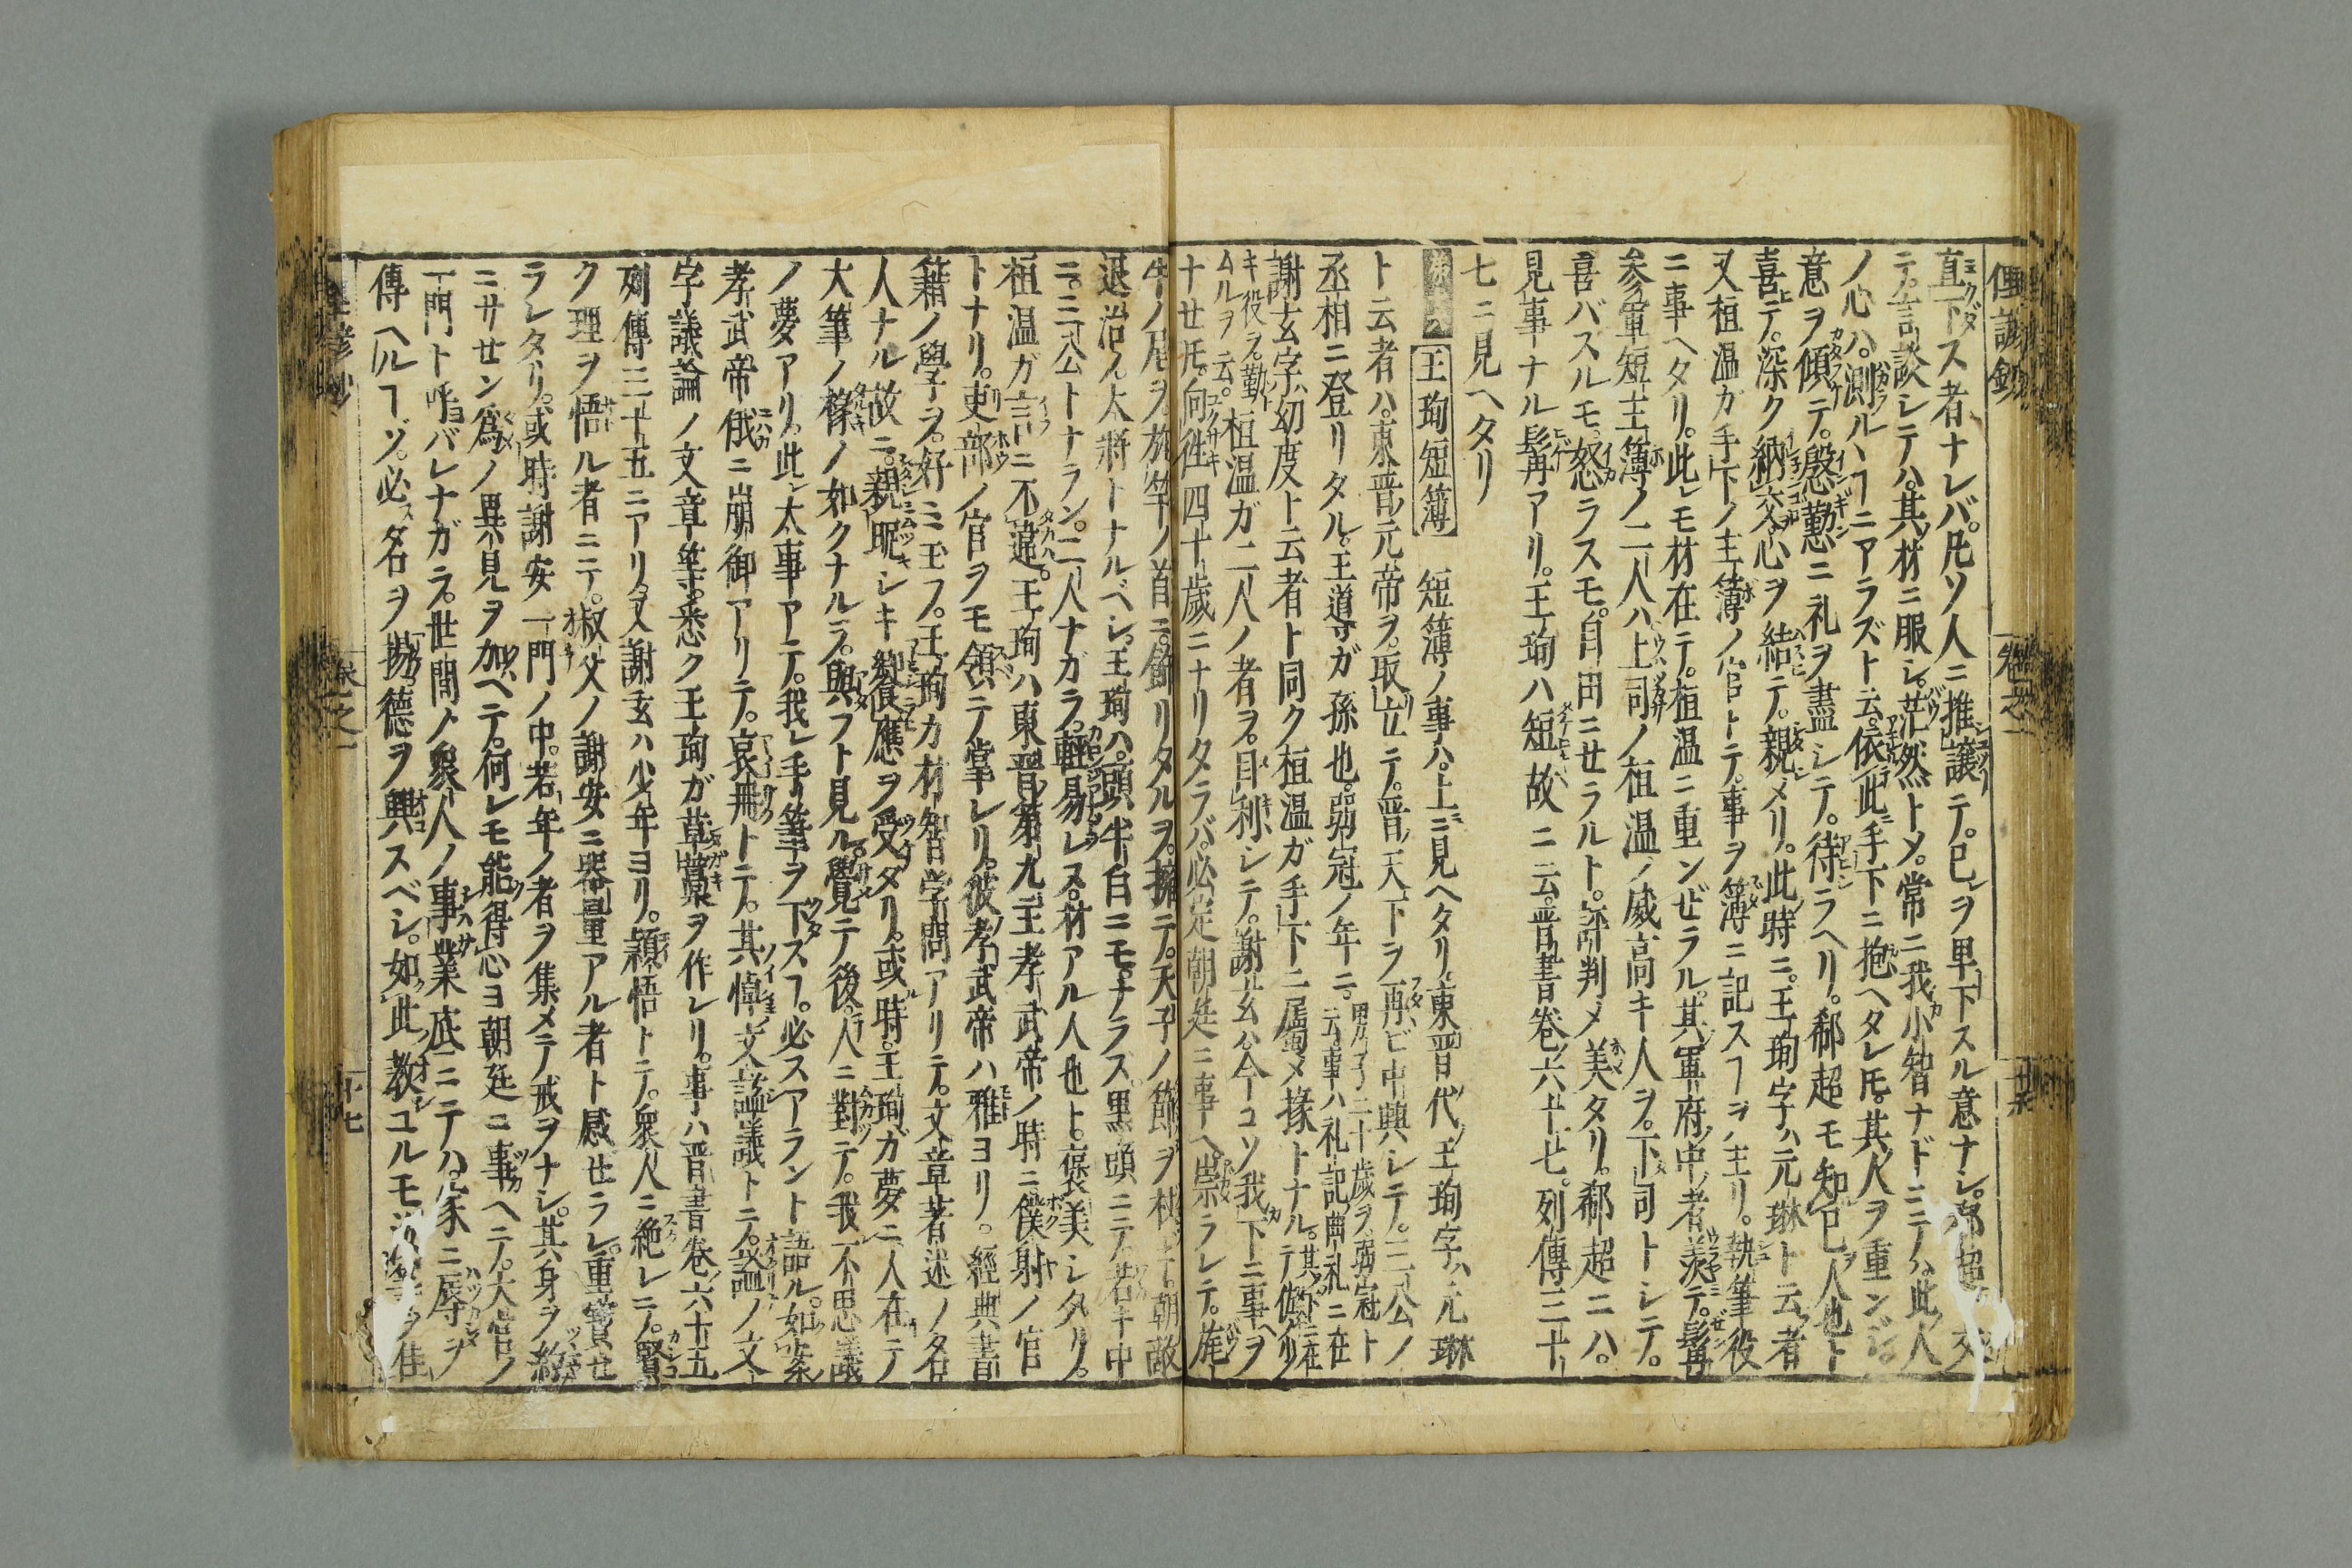 俚諺鈔
卷之一
直下ス者ナレバ。凡ソ人ニ推譲テ。已レヲ卑下スル意ナシ。郗超ト交
テ。言談シテハ。其材ニ服シ。茫然トメ。常ニ我小智ナドニテハ。此人
ノ心ハ。測ルヿニアラズト云。依此手下ニ抱ヘタレ𪜈。其人ヲ重ンジ
意ヲ傾テ。慇懃ニ礼ヲ盡シテ。待ラヘリ。郗超モ知已ノ人也ト
喜テ。深ク納交。心ヲ結テ。親メリ。此時ニ。王珣字ハ元琳ト云者
又桓温ガ手下ノ主簿ノ官トテ。事ヲ簿ニ記スヿヲ主リ。執筆役
ニ事ヘタリ。此レモ材在テ。桓温ニ重ンぜラル。其軍府ノ中ノ者羡テ。髯
参軍短主簿ノ二人ハ上司ノ桓温ノ威高キ人ヲ。下司トシテ。
喜バスルモ。怒ラスモ。自由ニセラルト。評判メ美タリ。郗超ニハ。
見事ナル髯アリ。王珣ハ短故ニ云。晋書卷六十七。列傳三十
七ニ見ヘタリ
王珣短簿 短簿ノ事ハ。上ニ見ヘタリ。東晋ノ代ノ王珣字ハ元琳
ト云者ハ。東晋ノ元帝ヲ。取立テ。晋ノ天下ヲ再ビ中興シテ。三公ノ
丞相ニ登リタル。王導ガ孫也。弱冠ノ年ニ。男子二十歲ヲ弱冠ト云事ハ礼記曲礼ニ在
謝玄字ハ幼度ト云者ト同ク桓温ガ手下ニ属メ掾トナル。
キ役ヲ勤ムルヲ云。桓温ガ二人ノ者ヲ。目利シテ。謝玄ハ今コソ我下ニ事ヘヲ
十せ𪜈。向徃四十歲ニナリタラバ。必定朝廷ニ事ヘ崇ラレテ。旄
牛ノ尾ヲ旂竿ノ首ニ。餙リタルヲ擁テ。天子ノ餙ヲ杖キ朝敵
退治ノ大將トナルベシ。王珣ハ。頭半白ニモナラス。黑頭ニテ若キ中
ニ。三公トナラン。二人ナガラ。輕易レス。材アル人也ト。褒美シタリ。
桓温ガ言ニ不違。王珣ハ東晋第九王孝武帝ノ時ニ僕射ノ官
トナリ。吏部ノ官ヲモ領ニテ掌レリ。彼孝武帝ハ雅ヨリ。經典書
籍ノ學ヲ。好ミ玉フ。王珣カ材智学問アリテ。文章著述ノ名
人ナル故ニ。親昵シキ饗應ヲ受タリ。或時。王珣ガ夢ニ人在テ
大筆ノ椽ノ如クナルヲ。與フト見ル。覺テ後。人ニ對テ。我不思議
ノ夢アリ。此レ大事アテ。我レ手筆ヲ下スヿ。必スアラント語ル。如案
孝武帝俄ニ崩御アリテ。哀冊トテ。其悼文謚議トテ。謚ノ文
字議論ノ文章等。悉ク王珣ガ草藁ヲ作レリ。事ハ晋書卷六十五
列傳三十五ニアリ。又謝玄ハ少年ヨリ。穎悟トテ。衆人ニ絶レニテ。賢
ク理ヲ悟ル者ニテ。叔父ノ謝安ニ器量アル者ト感せラレ。重寳せ
ラレタリ。或時謝安一門ノ中。若年ノ者ヲ集メテ戒ヲナシ。其身ヲ
ニサせン爲ノ異見ヲ加ヘテ。何レモ能得心ヨ朝廷ニ事ヘテ。大官ノ
一門ト呼バレナガラ。世間ノ衆人ノ事業底ニテハ。家ニ辱ヲ
傳ヘルヿゾ。必ス名ヲ揚德ヲ興スベシ。如此教ユルモ
卷之一
十七